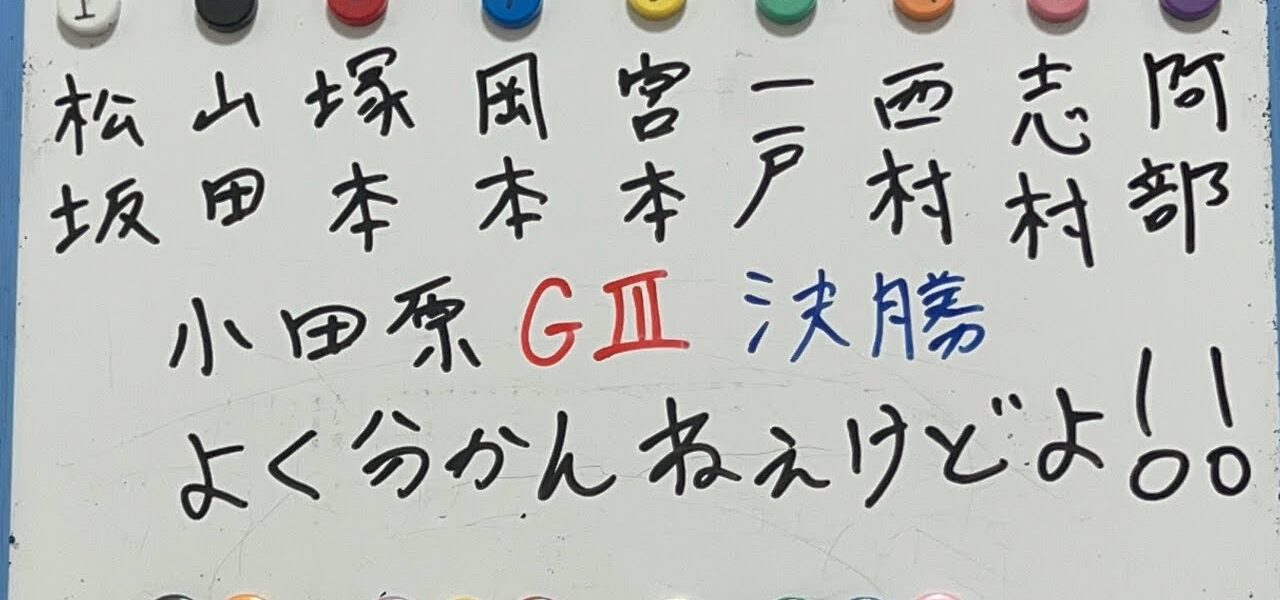 松坂 山田 塚本 岡本 宮本 一戸 西村 志村 阿部
小田原 GⅢ 決勝
よく分かんねえけどよ!!